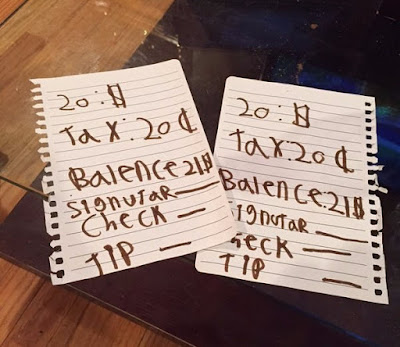 20:$
tax:20¢
Balence21$
signutar
Check
TIP
20:$
tax:20¢
Balence21$
ignutar
heck
TIP